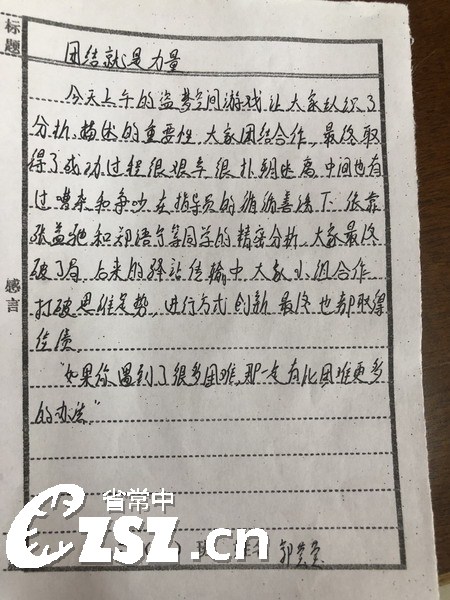 标题
团结就是力量
今天上午的盗梦空间游戏让大家认识了
分析、描述的重要性,大家团结合作,最终取
得了成功过程很艰辛很扑朔迷离,中间也有
过嘈杂和争吵在指导员的循循善诱下依靠
张益驰和郑语宁等同学的精密分析,大家最终
破了局,后来的驿站传输中,大家小组合作
打破思维定势,进行方式创新最终也都取得
佳绩
“如果你遇到了很多困难,那一定有比困难更多
的办法”
感言
省常中
czsz.cn